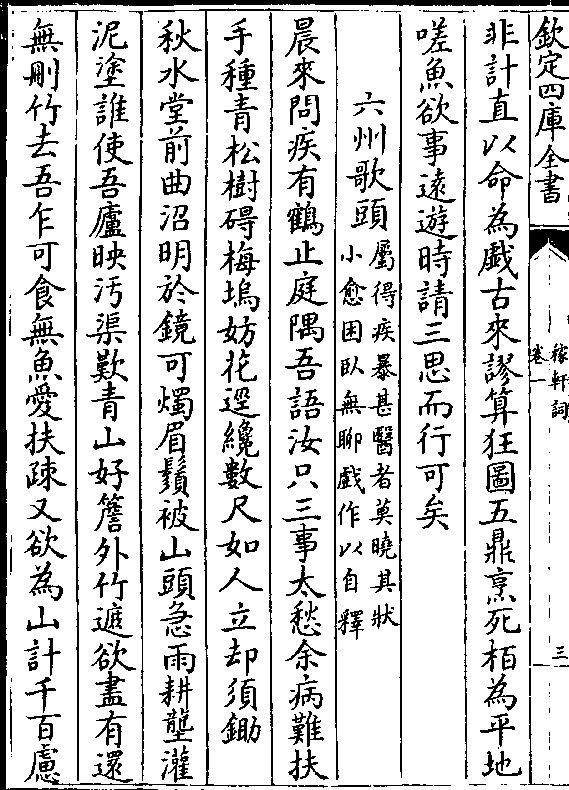 欽定四庫全書
稼軒詞
卷一
三
非計直以命為戲古來謬算狂圖五鼎烹死栢為平地
嗟魚欲事遠遊時請三思而行可矣
六州歌頭
屬得疾暴甚醫者莫曉其狀
小愈困臥無聊戲作以自釋
晨來問疾有鶴止庭隅吾語汝只三事太愁余病難扶
手種青松樹碍梅塢妨花逕纔數尺如人立却須鋤
秋水堂前曲沼明於鏡可燭眉鬚被山頭急雨耕壟灌
泥塗誰使吾廬映汚渠歎青山好簷外竹遮欲盡有還
無刪竹去吾乍可食無魚愛扶疎又欲為山計千百慮